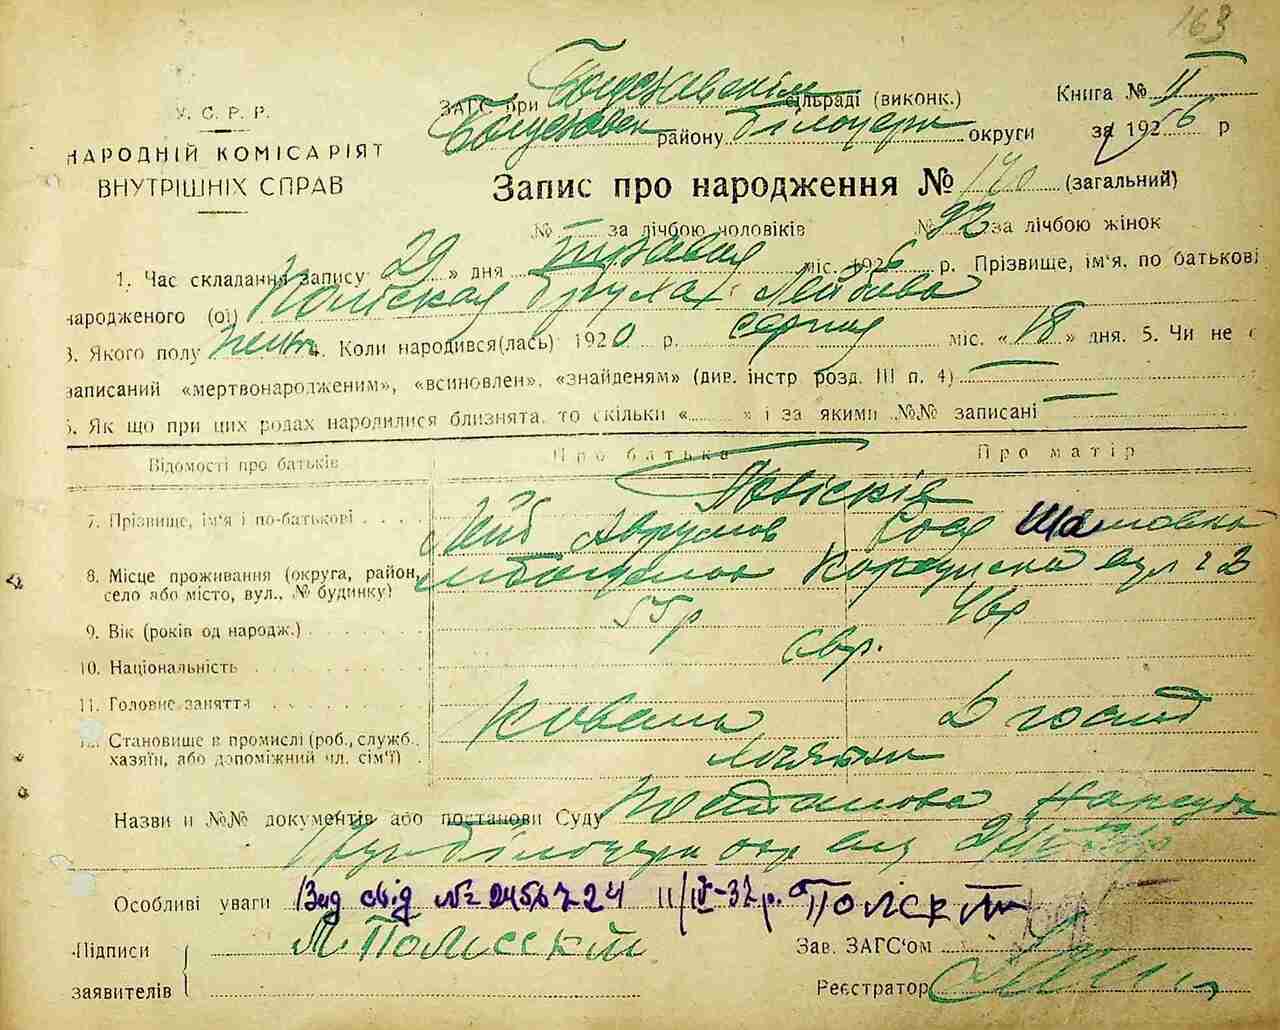 163
У.С.Р.Р.
НАРОДНІЙ КОМІСАРІЯТ
ВНУТРІШНІХ СПРАВ
ЗАГС при Богуславськім сільраді (виконк.) Книга № II
Богуславськ району Білоцерк округи за 1926 р
Запис про народження № 140 (загальний)
№ за лічбою чоловіків № 92 за лічбою жінок
1. Час складання запису 29 » дня травня міс. 1926 р. Прізвище, ім'я, по батькові
народженого (ої) Полiская Лейбова
3. Якого полу жіноч 4. Коли народився(лась) 1920 р. серпня міс. « 18 » дня. 5. Чи не є
записаний «мертвонародженим», «всиновлен», «знайденям» (див. інстр розд. III п. 4)
6. Як що при цих родах народилися близнята, то скільки « » і за якими №№ записані
Відомості про батьків Про батька Про матір
7. Прізвище, ім'я і по-батькові Поліскія
Лейб Аврумов Шамовна
8. Місце проживання (округа, район, село або місто, вул., № будинку) вул
9. Вік (років од народж.) 55р 46р
10. Національність євр.
11. Головне заняття коваль Д госп
12. Становище в промислі (роб., служб., хазяїн, або допоміжний чл. сім'ї) хазяїн
Назви и №№ документів або постанови Суду Постанова Нарсуда
Білоцерк окр від
Особливі уваги Вид свід № 2456724 11/IV-37 р. Полiск
Підписи заявителів Л. Полисскій
Зав. ЗАГС'ом
Реєстратор